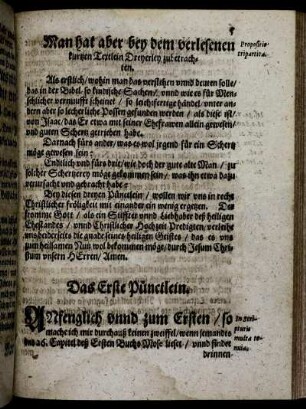 5
Man hat aber bey dem verlesenen
kurtzen Textlein Dreyerley zubetrach-
ten.
Propositio
tripartita.
Als erstlich / wohin man das verstehen vnnd deuten solle /
das in der Bibel / so kindische Sachen / vnnd wie es für Men-
schlicher vernunfft scheinet / so leichtfertige händel / vnter an-
dern aber so lächerliche Possen gefunden werden / als diese ist /
von Isaac / das Er etwa mit seiner Ehefrawen allein gewesen /
vnd guten Schertz getrieben habe.
Darnach fürs ander / was es wol jrgend für ein Schertz
möge gewesen sein:
Endtlich vnd fürs dritte / wie doch der gute alte Man / zu
solcher Schertzerey möge gekommen sein / was jhn etwa dazu
verursacht vnd gebracht habe:
Bey diesen dreyen Pünctlein / wollen wir vns in rechter
Christlicher frölichkeit mit einander ein wenig ergetzen. Der
fromme Gott / als ein Stiffter vnnd Liebhaber deß heiligen
Ehestandes / vnnd Christlicher Hochzeit Predigten / verleihe
vns allerseits die gnade seines heiligen Geistes / das es vns
zum heilsamen Nutz wol bekommen möge / durch Jesum Chri-
stum vnsern HErren / Amen.
Das Erste Pünctlein.
ANfenglich vnnd zum Ersten / so
mache ich mir durchauß keinen zweiffel / wenn jemandes
das 26. Capitel deß Ersten Buchs Mose lieset / vnnd findet
drinnen
In scri-
pturis
multa te-
nuia.